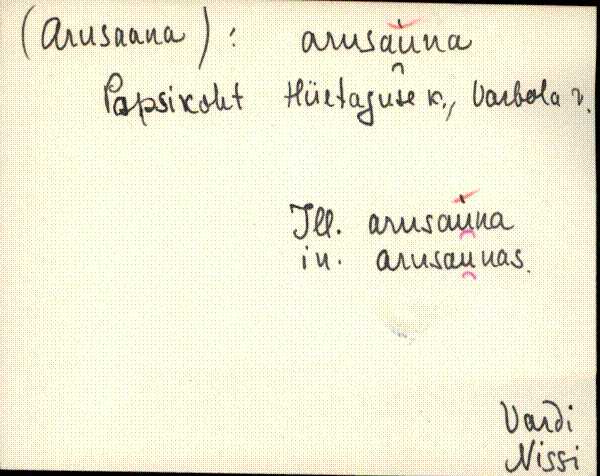 (Arusaana): arusau̯na
Popsikoht Hüetaguse k., Varbola v.
Ill. arusau̯na
in. arusau̯nas.
Vardi
Nissi